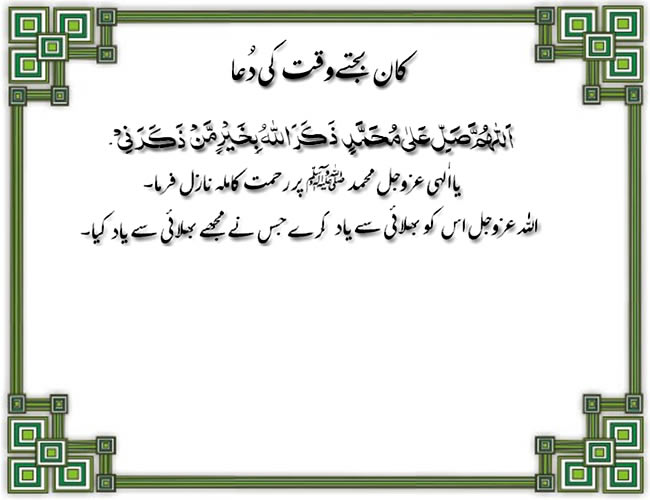 کان بجتے وقت کی دُعا
اَللّٰھُمَّ صَلِّ عَلٰی مُحَمَّدٍ ذَکَرَ اللّٰہُ بِخَیْرٍ مَّنْ ذَکَرَنِیْ.
یااٰلہی عزوجل محمد ﷺ پر رحمت کاملہ نازل فرما۔
اللہ عزوجل اس کو بھلائی سے یاد کرے جس نے مجھے بھلائی سے یاد کیا۔